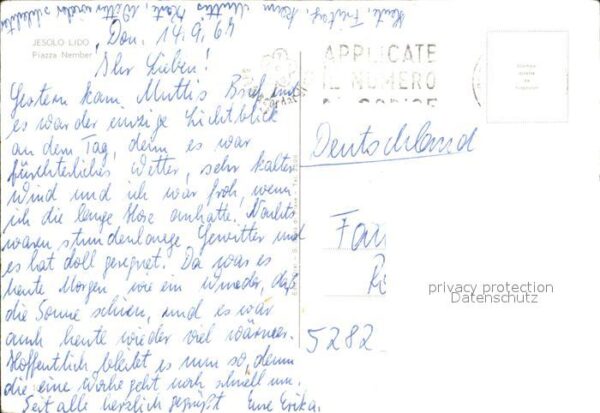 Heute, Freitag, kam Muttis Karte, Wetter wieder schlechter
JESOLO LIDO
Piazza Nember
Don. 14.9.67
Ihr Lieben!
Gestern kam Muttis Brief und
es war der einzige Lichtblick
an dem Tag, denn es war
fürchterliches Wetter, sehr kalter
Wind und ich war froh, wenn
ich die lange Hose anhatte. Nachts
waren stundenlange Gewitter und
es hat doll geregnet. Da war es
heute Morgen wie ein Wunder, daß
die Sonne schien, und es war
auch heute wieder viel wärmer.
Hoffentlich bleibt es nun so, denn
die eine Woche geht noch schnell um.
Seit alle herzlich gegrüßt Eure Erika.
APPLICATE
IL NUMERO
DI CODICE
Deutschland
Fam
5282
privacy protection
Datenschutz